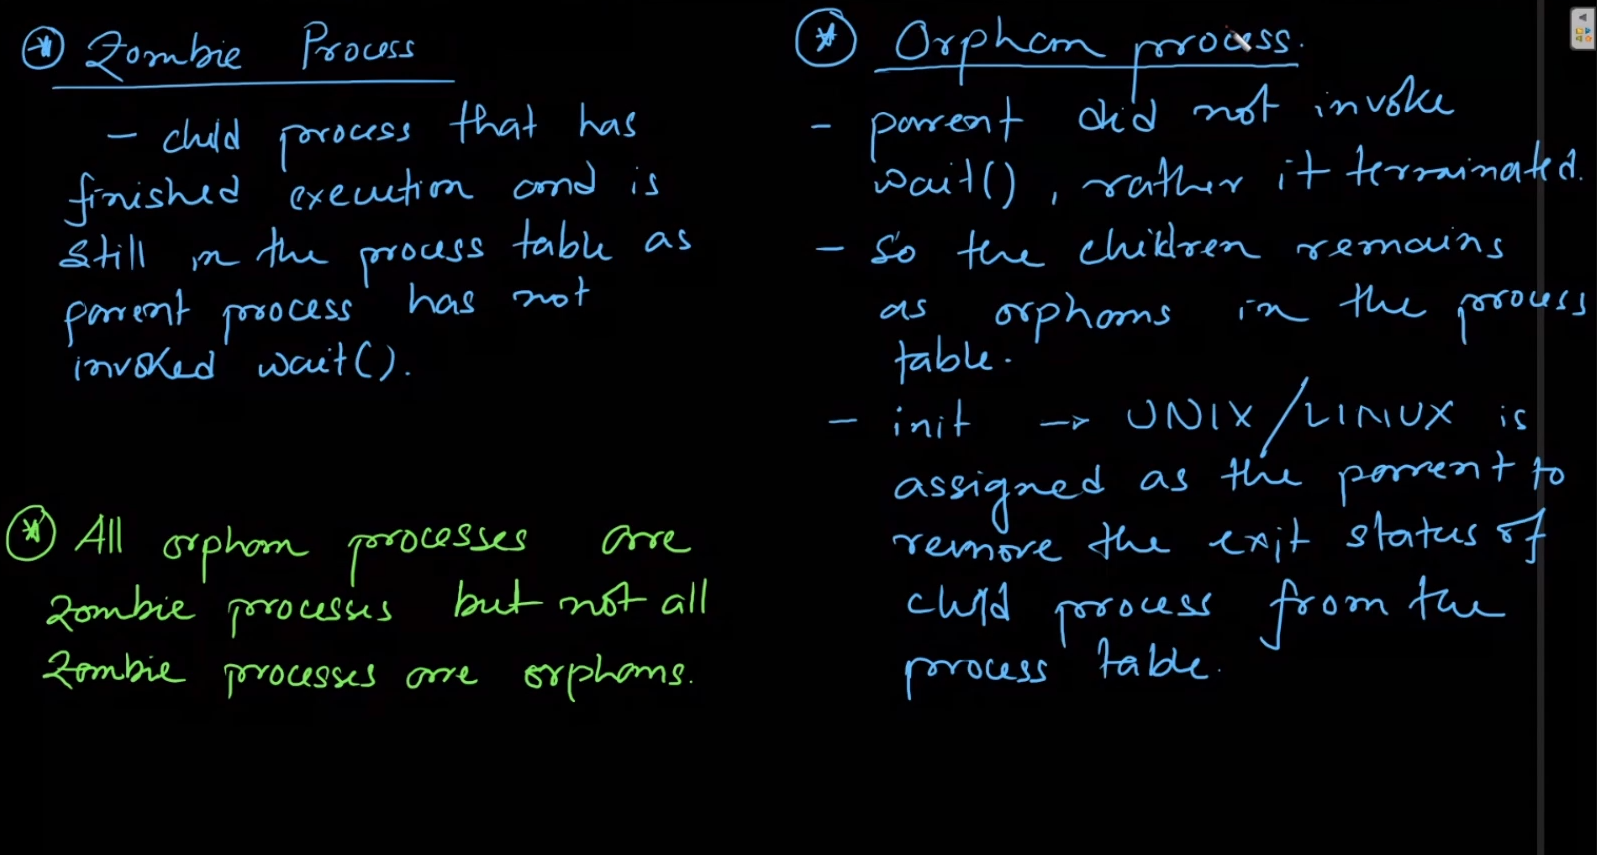 * Zombie Process
- child process that has
finished execution and is
still in the process table as
parent process has not
invoked wait().
* All orphan processes are
zombie processes but not all
zombie processes are orphans.
* Orphan process.
- parent did not invoke
wait(), rather it terminated.
- So the children remains
as orphans in the process
table.
- init → UNIX/LINUX is
assigned as the parent to
remove the exit status of
child process from the
process table.